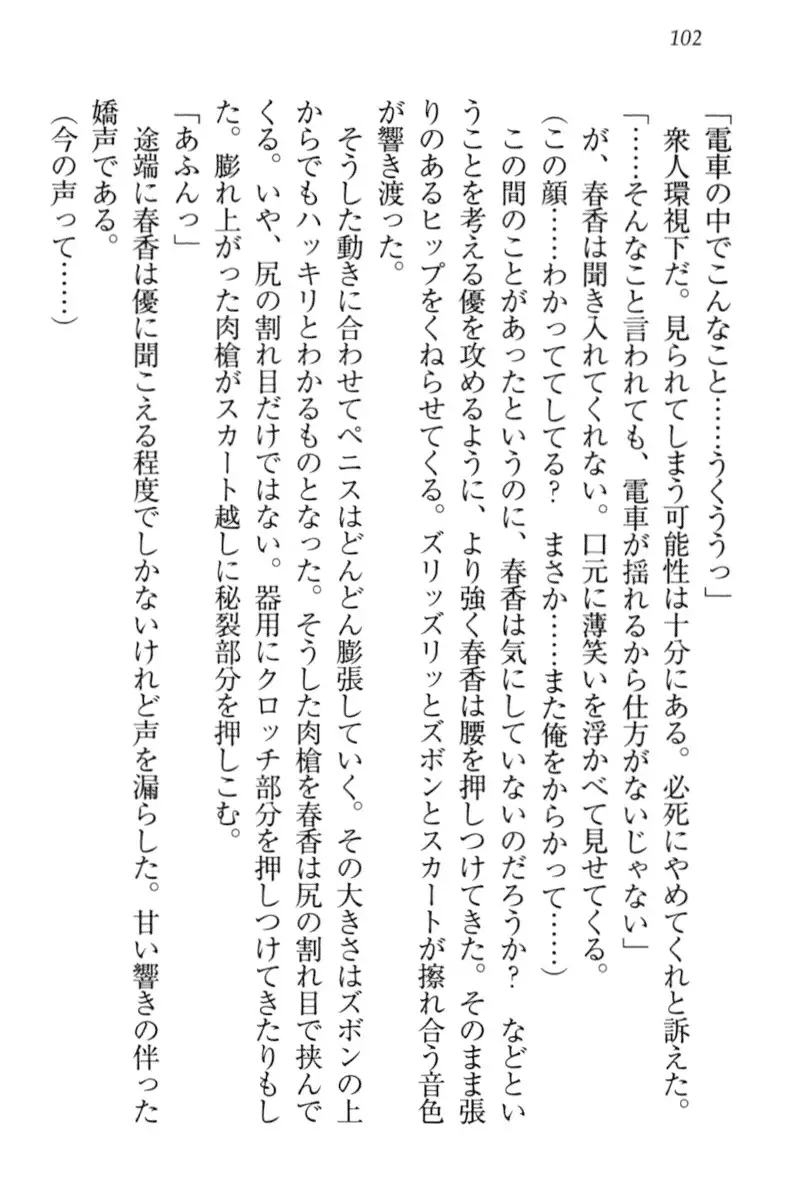 102
「電車の中でこんなこと……うくううっ」
衆人環視下だ。見られてしまう可能性は十分にある。必死にやめてくれと訴えた。
「……そんなこと言われても、電車が揺れるから仕方がないじゃない」
が、春香は聞き入れてくれない。口元に薄笑いを浮かべて見せてくる。
(この顔……わかっててしてる？　まさか……また俺をからかって……)
この間のことがあったというのに、春香は気にしていないのだろうか？　などとい
うことを考える優を攻めるように、より強く春香は腰を押しつけてきた。そのまま張
りのあるヒップをくねらせてくる。ズリッズリッとズボンとスカートが擦れ合う音色
が響き渡った。
そうした動きに合わせてペニスはどんどん膨張していく。その大きさはズボンの上
からでもハッキリとわかるものとなった。そうした肉槍を春香は尻の割れ目で挟んで
くる。いや、尻の割れ目だけではない。器用にクロッチ部分を押しつけてきたりもし
た。膨れ上がった肉槍がスカート越しに秘裂部分を押しこむ。
「あふんっ」
途端に春香は優に聞こえる程度でしかないけれど声を漏らした。甘い響きの伴った
嬌声である。
(今の声って……)